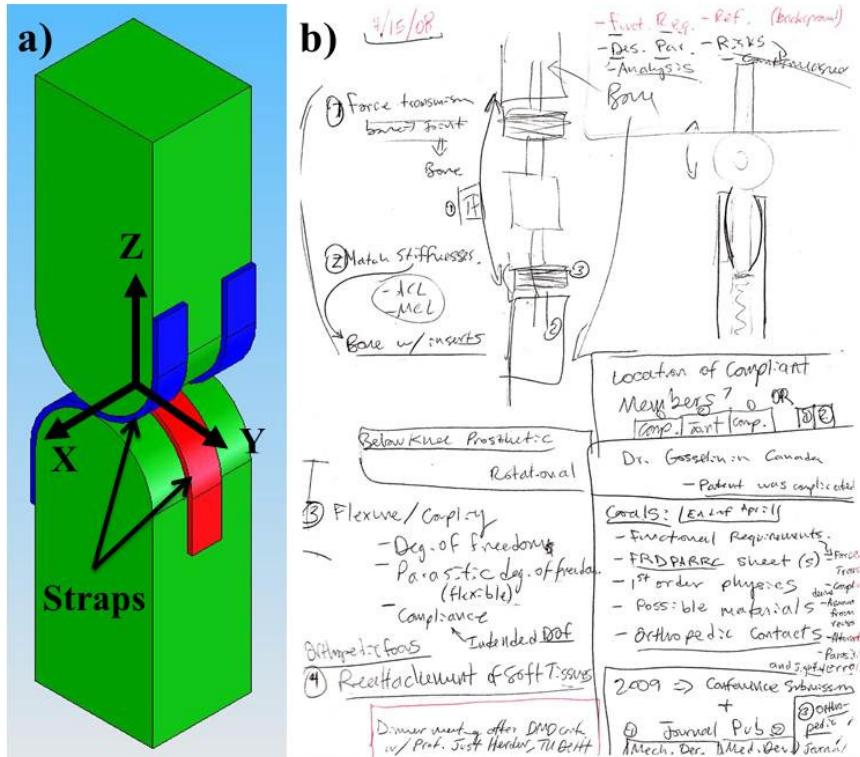 a)
Z
X
Y
Straps
b)
4/15/08
- Funct. Req. - Ref. (background)
- Des. Par. - Risks
- Analysis - Countermeasures
① Force transmission
bone → joint
Bone
Bone
①
② Match Stiffnesses.
- ACL
- MCL
③
Bone w/ inserts
②
Location of Compliant
Members?
OR
Comp. Joint Comp.
① ②
Below Knee Prosthetic
Rotational
Dr. Gosselin in Canada
- Patent was complicated
③ Flexure/Coupling
- Deg. of freedom
- Parasitic deg. of freedom
(flexible)
- Compliance
Intended DOF
Orthopedic focus
④ Reattachment of Soft Tissues
Goals: End of April
- Functional Requirements.
- FRDPARRC sheet(s)
- 1st order physics
- Possible materials
- Orthopedic Contacts
2009 ⇒ Conference Submission
+
① Journal Pub ②
Mech. Des. Med. Dev.
③ Orthopedic
Journal
Dinner meeting after DMD conf.
w/ Prof. Just Herder, TU Delft